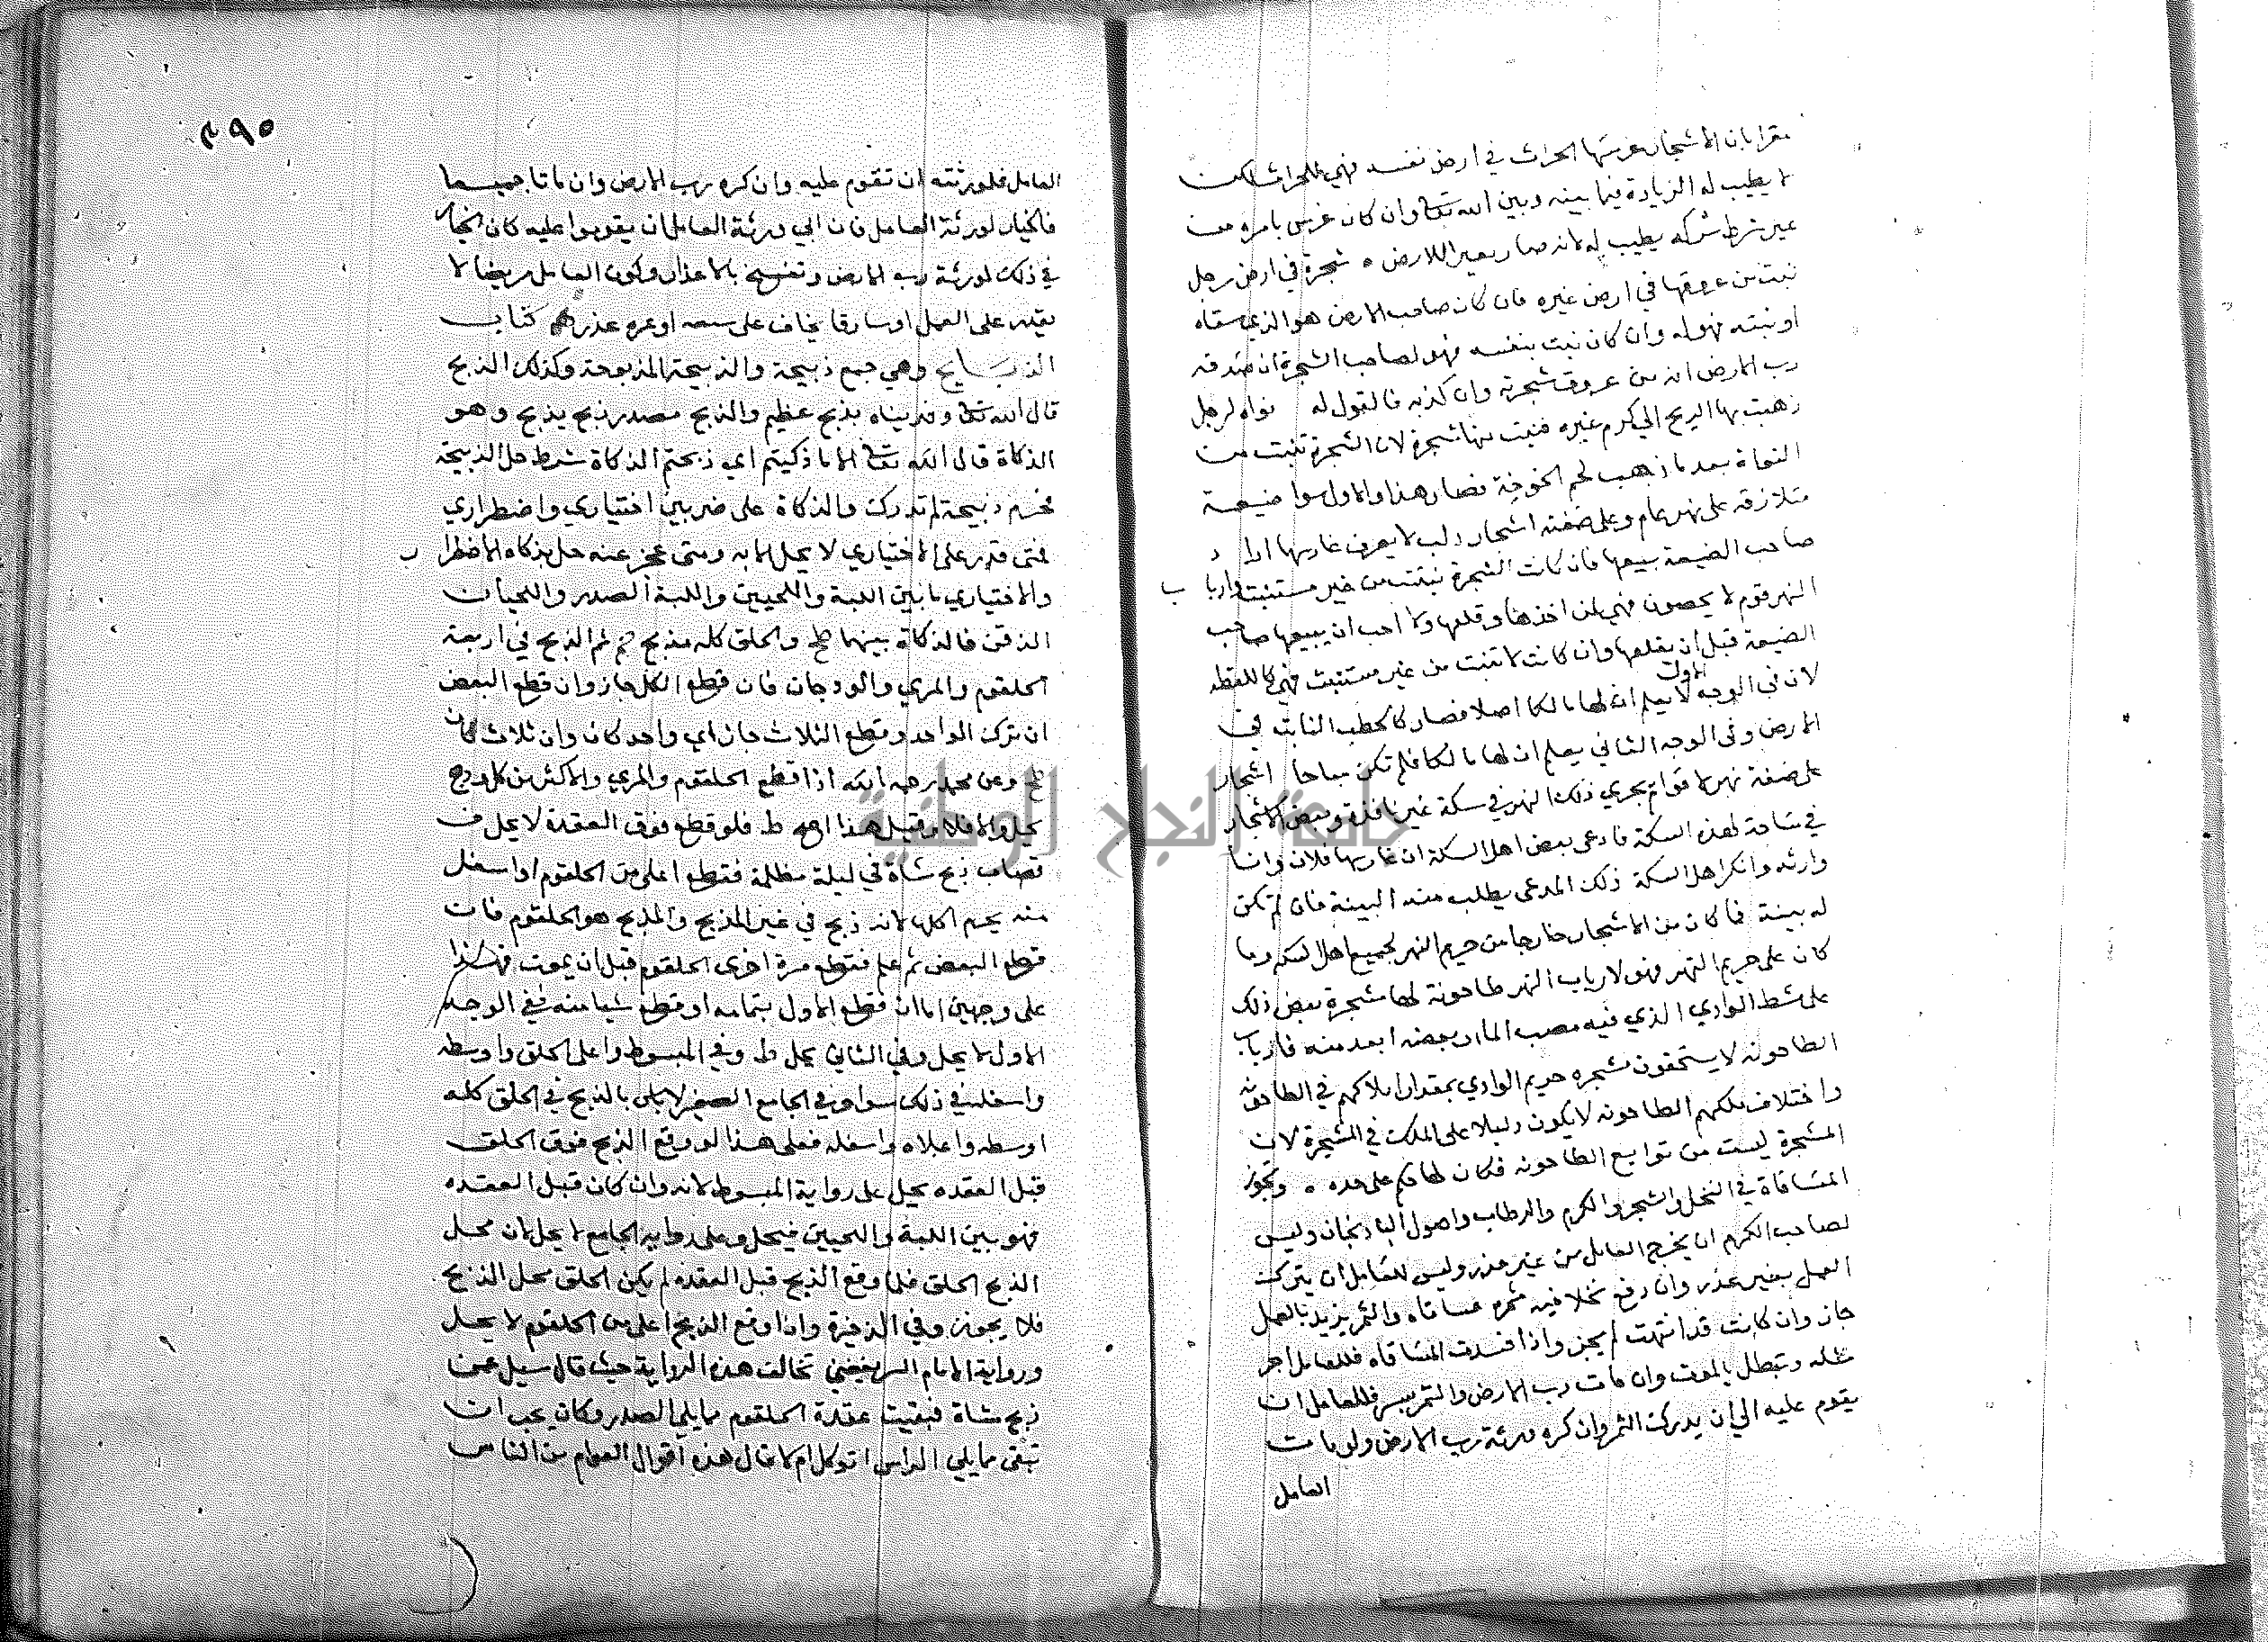 مقرا بان الاشجار غرسها الحراث في ارض نفسه فهي للحراث لكن
لا يطيب له الزيادة فيما بينه وبين الله تعا وان كان غرس بامره من
غير شرط شركه يطيب له لانه صار معير اللارض ٥ شجرة في ارض رجل
نبت من عروقها في ارض غيره فان كان صاحب الارض هو الذي سقاه
او نبته فهو له وان كان نبت بنفسه فهو لصاحب الشجرة ان صدقه
رب الارض انه من عروق شجرته وان كذبه فالقول له نواه لرجل
ذهبت بها الريح الي كرم غيره فنبت منها شجرة لان الشجرة تنبت من
النواة بعد ما ذهب لحم الخوخة فصار هذا والاول سوا ضيعة
متلازقه على نهر عام وعلى ضفته اشجار دلب لا يعرف غارسها اراد
صاحب الضيعة بيعها فان كانت الشجرة نبتت من غير مستنبت وارباب
النهر قوم لا يحصون فهي لمن اخذها وقلعها ولا احب ان يبيعها صاحب
الضيعة قبل ان يقلعها وان كانت لا تنبت من غير مستنبت فهي كاللقطه
لان في الوجه الاول لا يعلم ان لها مالكا اصلا فصار كالحطب النابت في
الارض وفي الوجه الثاني يعلم ان لها مالكا فلم تكن مباحا اشجار
على ضفة نهر لاقوام يجري ذلك النهر في سكة غير نافذة وبعض الاشجار
في ساحة لهذه السكة فادعى بعض اهل السكة ان غارسها فلان وانا
وارثه وانكر اهل السكة ذلك المدعى يطلب منه البينة فان لم تكن
له بينة فما كان من الاشجار خارجا من حريم النهر لجميع اهل السكه وما
كان على حريم النهر فهو لارباب النهر طاحونة لها شجرة بعض ذلك
على شط الوادي الذي فيه مصب الما وبعضه ابعد منه فارباب
الطاحونه لا يستحقون شجره حريم الوادي بمقدار املاكهم في الطاحونه
واختلاف ملكهم الطاحونه لا يكون دليلا على الملك في الشجرة لان
الشجرة ليست من توابع الطاحونه فكان لها حكم على حده ٥ وتجوز
المساقاة في النخل والشجر والكرم والرطاب واصول الباذنجان وليس
لصاحب الكرم ان يخرج العامل من غير عذر وليس للعامل ان يترك
العمل بغير عذر وان دفع نخلا فيه ثمره مساقاه والثمر يزيد بالعمل
جاز وان كانت قد انتهت لم يجز واذا فسدت المساقاه فللعامل اجر
مثله وتبطل بالموت وان مات رب الارض والتمر بسر فللعامل ان
يقوم عليه الي ان يدرك الثمر وان كره ورثة رب الارض ولو مات
العامل
٢٩٥
العامل فلورثته ان تقوم عليه وان كره رب الارض وان ماتا جميعا
فالخيار لورثة العامل فان ابي ورثة العامل ان يقوموا عليه كان الخيار
في ذلك لورثة رب الارض وتفسخ بالاعذار وكون العامل مريضا لا
يقدر على العمل او سارقا يخاف على سعفه او ثمره عذر كتاب
الذبايح وهي جمع ذبيحة والذبيحة المذبوحة وكذلك الذبح
قال الله تعا وفديناه بذبح عظيم والذبح مصدر ذبح يذبح وهو
الذكاة قال الله تعا الا ما ذكيتم اي ذبحتم الذكاة شرط حل الذبيحة
فحرم ذبيحة لم تدرك والذكاة على ضربين اختياري واضطراري
فمتى قدر على الاختياري لا يحل الا به ومتى عجز عنه حل بذكاه الاضطرا ر
والاختياري ما بين اللبة واللحيين واللبة الصدر واللحيان
الذقن فالذكاة بينهما ط والحلق كله مذبح ثم الذبح في اربعة
الحلقوم والمري والودجان فان قطع الكل جاز وان قطع البعض
ان ترك الواحد وقطع الثلاث جاز اي واحد كان وان ثلاث كان
وعن محمد رحمه الله اذا قطع الحلقوم والمري والاكثر من كل ودج
يحل والا فلا وقيل هذا اصح ط فلو قطع فوق العقدة لا يحل ف
قصاب ذبح شاة في ليلة مظلمة فقطع اعلى من الحلقوم او اسفل
منه يحرم اكلها لانه ذبح في غير المذبح والمذبح هو الحلقوم فان
قطع البعض ثم علم فقطع مرة اخرى الحلقوم قبل ان يموت فهذا
على وجهين اما ان قطع الاول بتمامه او قطع شيا منه ففي الوجه
الاول لا يحل وفي الثاني يحل ط وفي المبسوط واعلى الحلق واوسطه
واسفله في ذلك سوا وفي الجامع الصغير لا باس بالذبح في الحلق كله
اوسطه واعلاه واسفله فعلى هذا لو وقع الذبح فوق الحلق
قبل العقده يحل على رواية المبسوط لانه وان كان قبل العقده
فهو بين اللبة واللحيين فيحل وعلى رواية الجامع لا يحل لان محل
الذبح الحلق فلما وقع الذبح قبل العقده لم يكن الحلق محل الذبح
فلا يجوز وفي الذخيرة واذا وقع الذبح اعلى من الحلقوم لا يحل
ورواية الامام الرستغفني تخالف هذه الرواية حيث قال سيل عمن
ذبح شاة فبقيت عقدة الحلقوم مما يلي الصدر وكان يجب ان
تبقى مما يلي الراس اتوكل ام لا قال هذه اقوال العوام من الناس
جامعة النجاح الوطنية